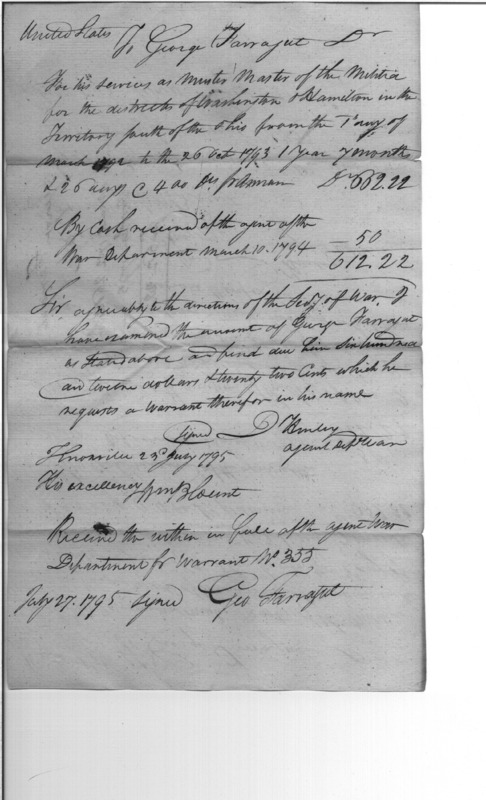 United States To George Farragut Dr
For his services as Muster Master of the Militia
for the districts of Washington & Hamilton in the
Territory south of the Ohio from the 1st day of
March 1792 to the 26 Oct 1793 1 year 7 months
& 26 days @ 400 Drs pr Annum Dr 662.22
By Cash received of the agent of the
War Department March 10. 1794 50
612.22
Sir agreeably to the directions of the Secy of War. I
have examined the amount of George Farragut
as stated above and find due him Six hundred
and twelve dollars & twenty two Cents which he
requests a warrant therefor in his name
Signed D Henley
agent Dept War
Knoxville 23d July 1795
His excellency Wm Blount
Received the within in full of the agent War
Department for Warrant No. 355
July 27. 1795 Signed Geo Farragut